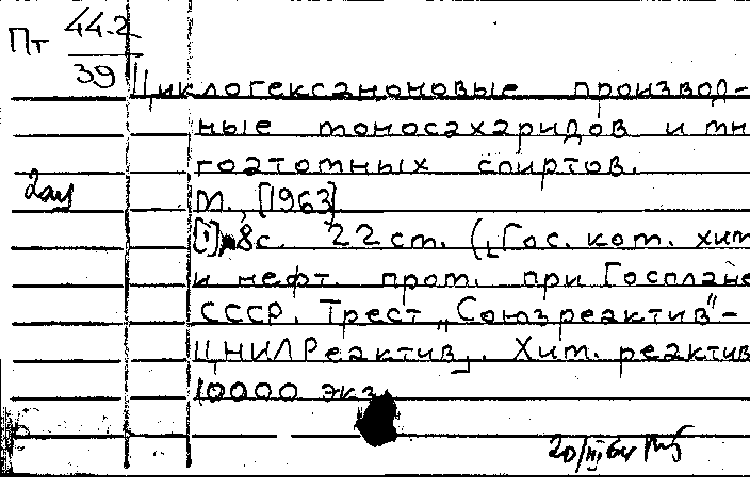 Пт 44.2
39
Циклогексаноновые производ-
ные моносахаридов и мн
гоатомных спиртов.
М. [1963]
[1], 8с. 22 см. ([Гос. ком. хим
и нефт. пром. при Госплане
СССР. Трест „Союзреактив"-
ЦНИЛРеактив]. Хим. реактив
10000 экз.
20/III 64